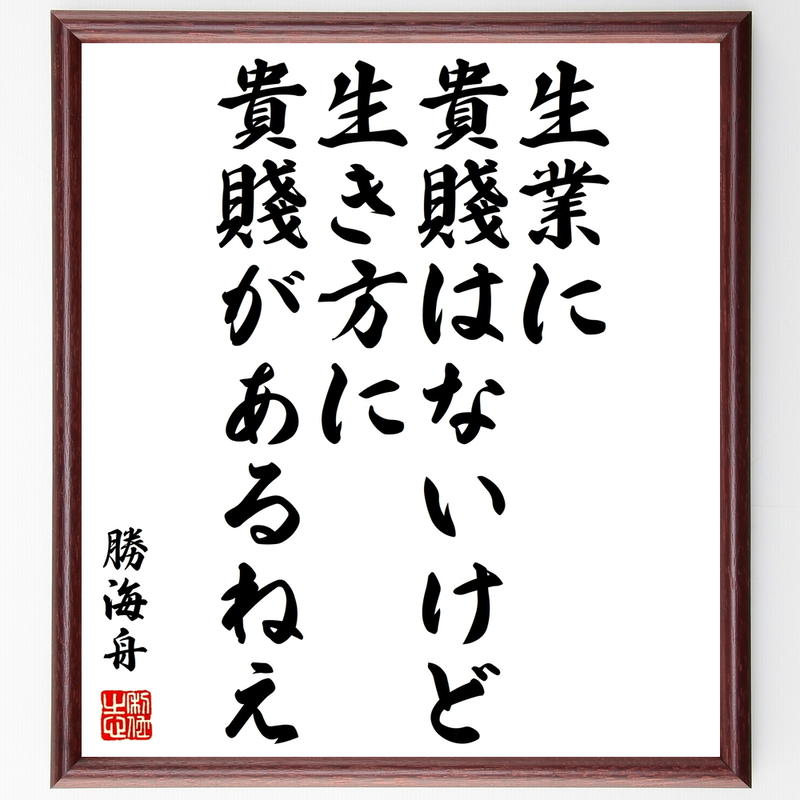 生業に
貴賤はないけど
生き方に
貴賤があるねえ
勝海舟